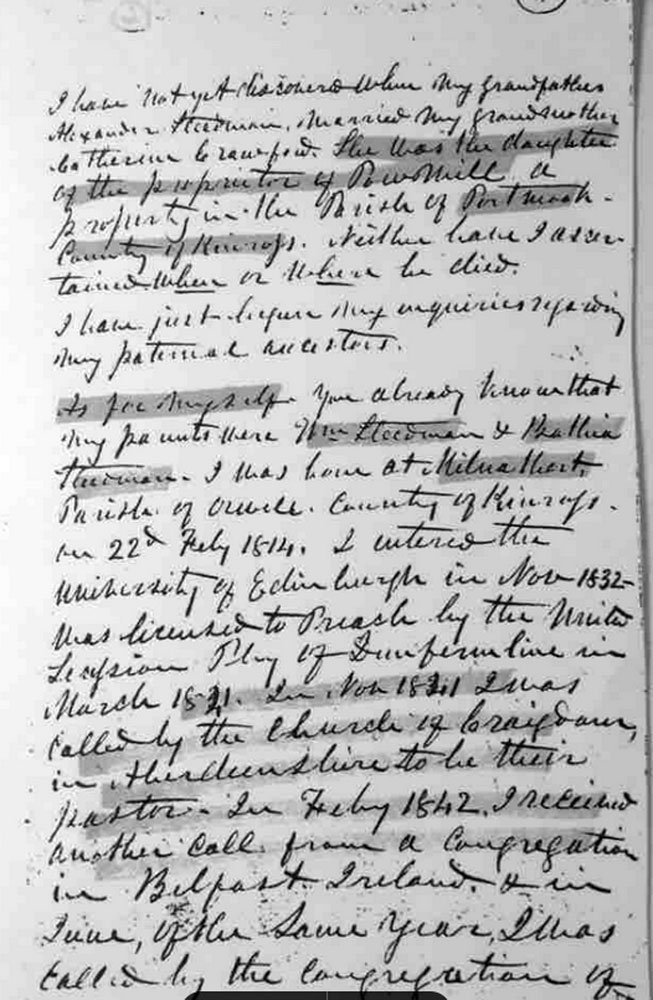 I have not yet discovered when my grandfather
Alexander Steedman, married my grandmother
Catherine Crawford. She was the daughter
of the proprietor of Powmill a
property in the Parish of Portmoak.
County of Kinross. Neither have I ascer-
tained when or where he died.
I have just begun my enquiries regarding
my paternal ancestors.
As for myself. You already know that
my parents were Wm Steedman & Bathia
Steedman. I was born at Milnathort,
Parish of Orwell. County of Kinross.
on 22d Feby 1814. I entered the
University of Edinburgh in Nov 1832-
Was licensed to Preach by the United
Secession Pby of Dunfermline in
March 1841. In Nov 1841 I was
called by the Church of Craigdam,
in Aberdeenshire to be their
pastor. In Feby 1842, I received
another call from a Congregation
in Belfast. Ireland. & in
June, of the Same Year, I was
called by the Congregation of